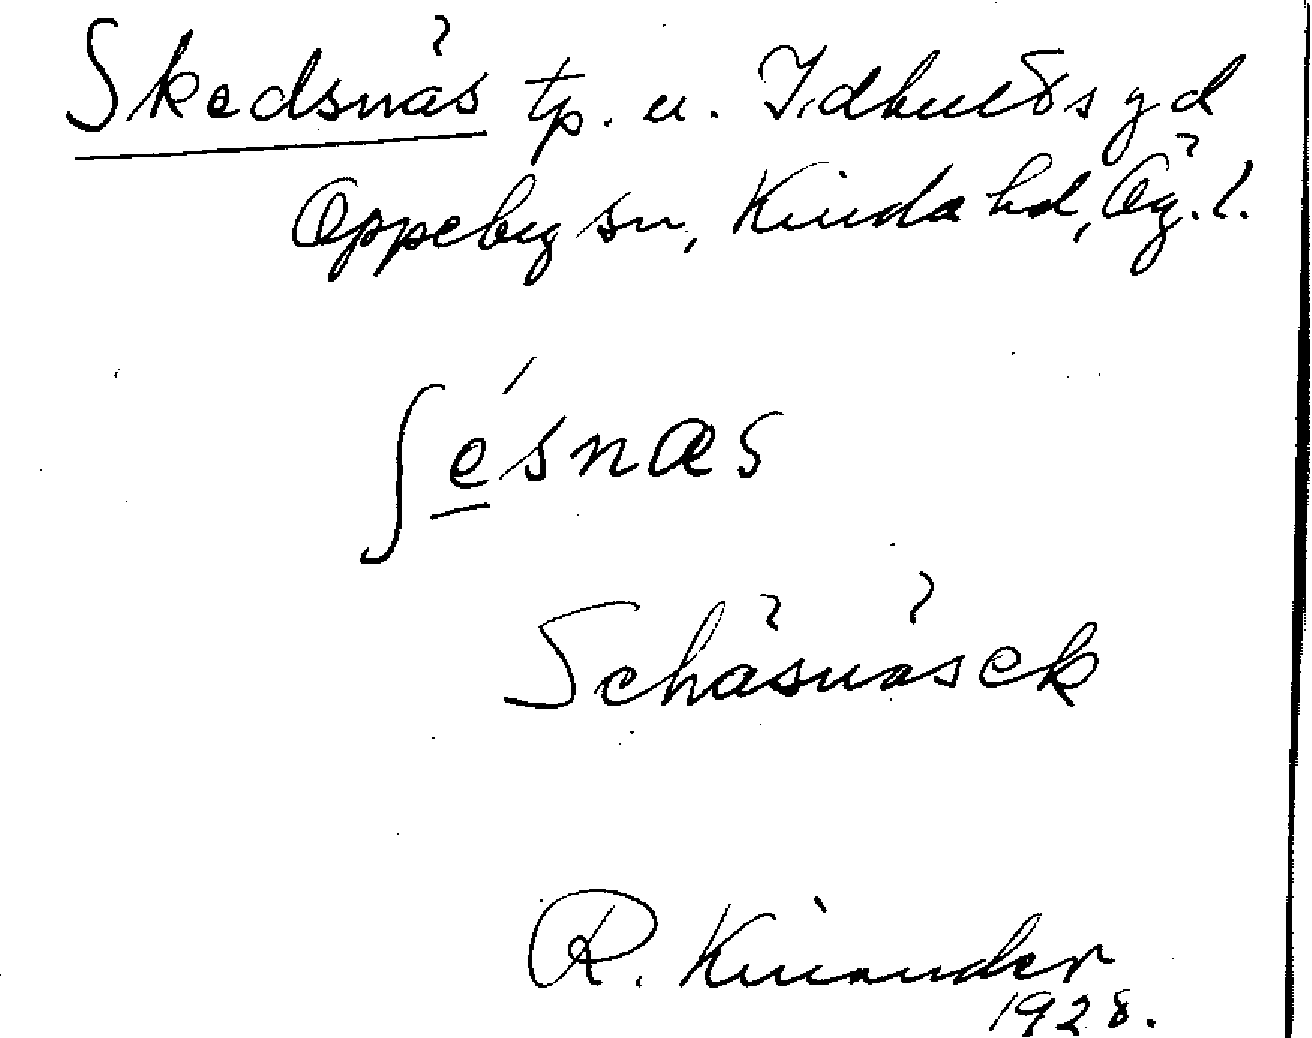 Skedsnäs tp. u. Idhult s gd
Oppeby sn, Kinda hd, Ög. l.
ʃésnæs
Schäsnäsek
R. Kinander
1928.